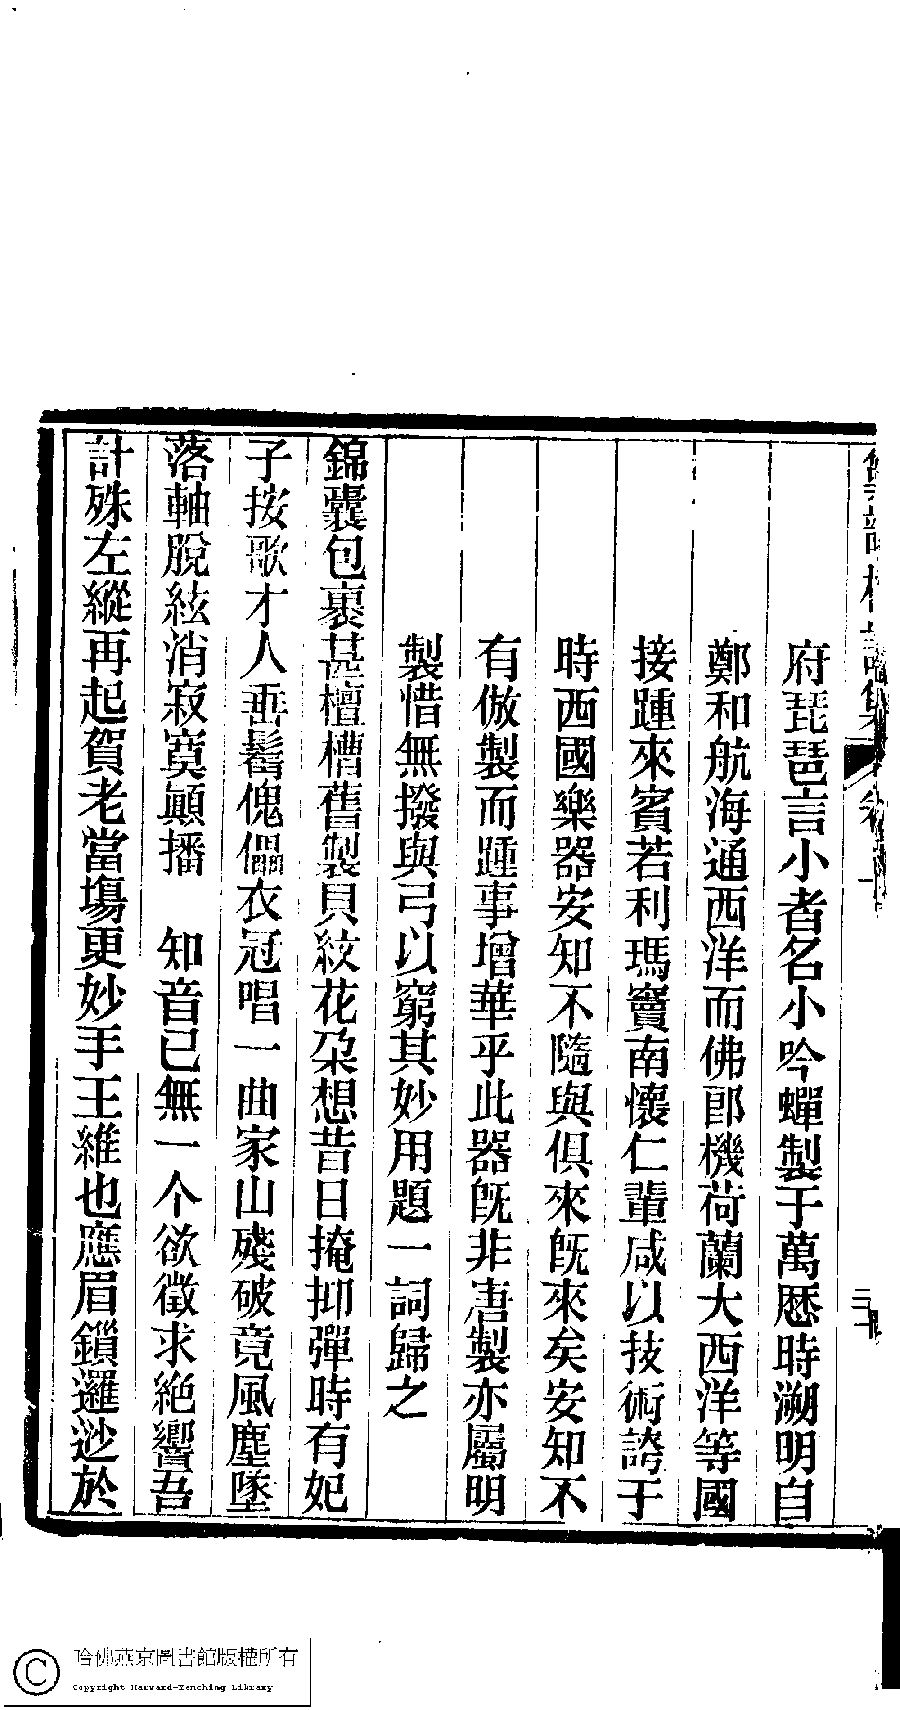 府琵琶言小者名小吟蟬製于萬厯時溯明自
鄭和航海通西洋而佛郎機荷蘭大西洋等國
接踵來賓若利瑪竇南懷仁輩咸以技術誇于
時西國樂器安知不隨與俱來旣來矣安知不
有倣製而踵事增華乎此器旣非唐製亦屬明
製惜無撥與弓以窮其妙用題一詞歸之
錦囊包裹甚檀槽舊製貝紋花朶想昔日掩抑彈時有妃
子按歌才人垂鬌傀儡衣冠唱一曲家山殘破竟風塵墜
落軸脫絃消寂寞顚播　知音已無一个欲徵求絶響吾
計殊左縱再起賀老當塲更妙手王維也應眉鎖邏逤於
三十
哈佛燕京圖書館版權所有
Copyright Harvard-Yenching Library